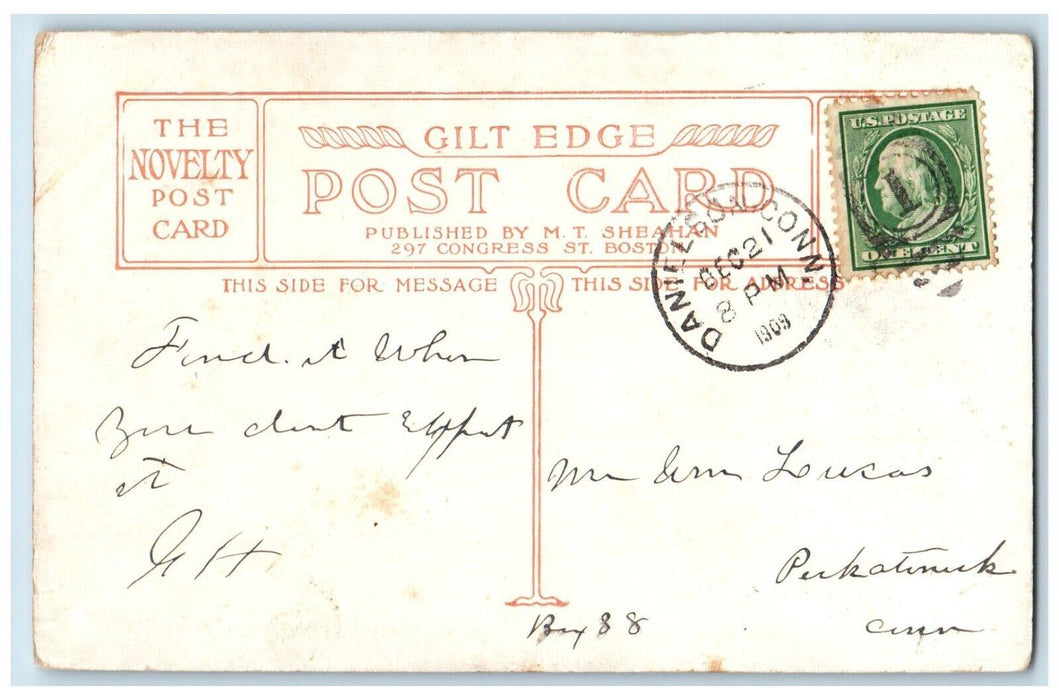 THE
NOVELTY
POST
CARD
GILT EDGE
POST CARD
PUBLISHED BY M. T. SHEAHAN
297 CONGRESS ST. BOSTON
U.S. POSTAGE
1
ONE CENT
DANIELSON CONN.
DEC 21
8 PM
1909
THIS SIDE FOR MESSAGE
THIS SIDE FOR ADDRESS
Find it When
You dont Expect
it
G H
Mr Wm Lucas
Conn
Box 88